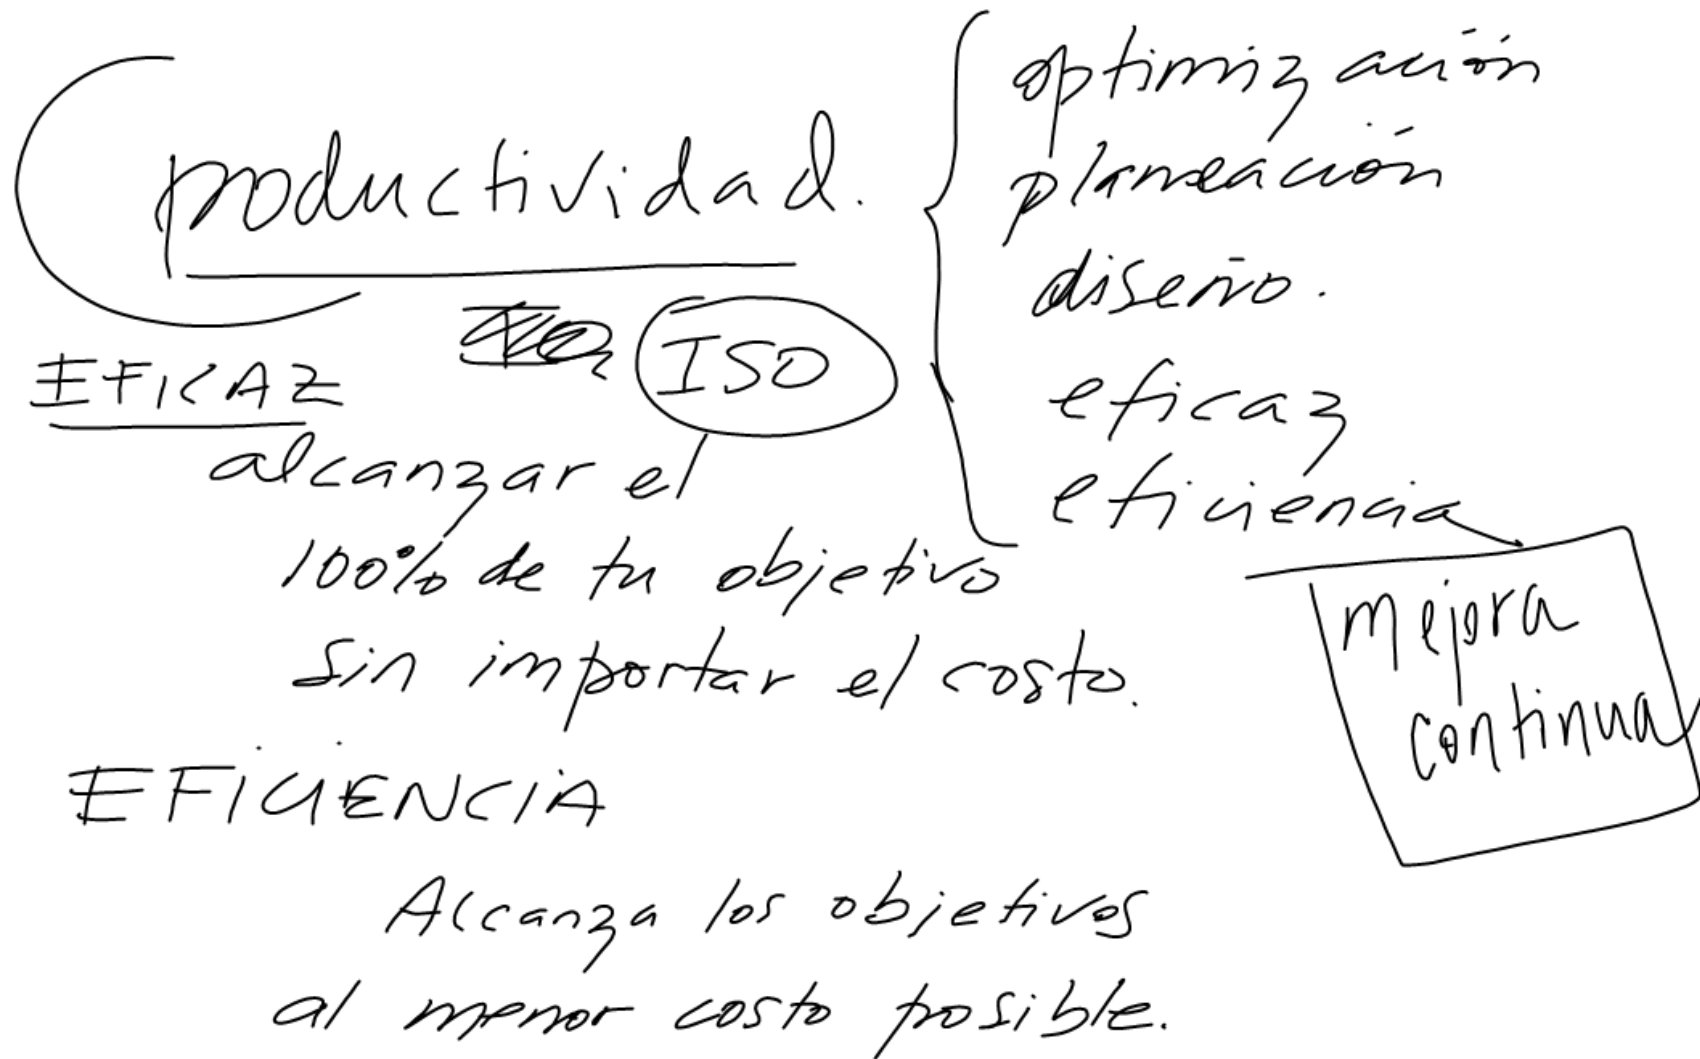 productividad.
optimización
planeación
diseño.
eficaz
eficiencia
mejora
continua
ISO
EFICAZ
alcanzar el
100% de tu objetivo
sin importar el costo.
EFICIENCIA
Alcanza los objetivos
al menor costo posible.